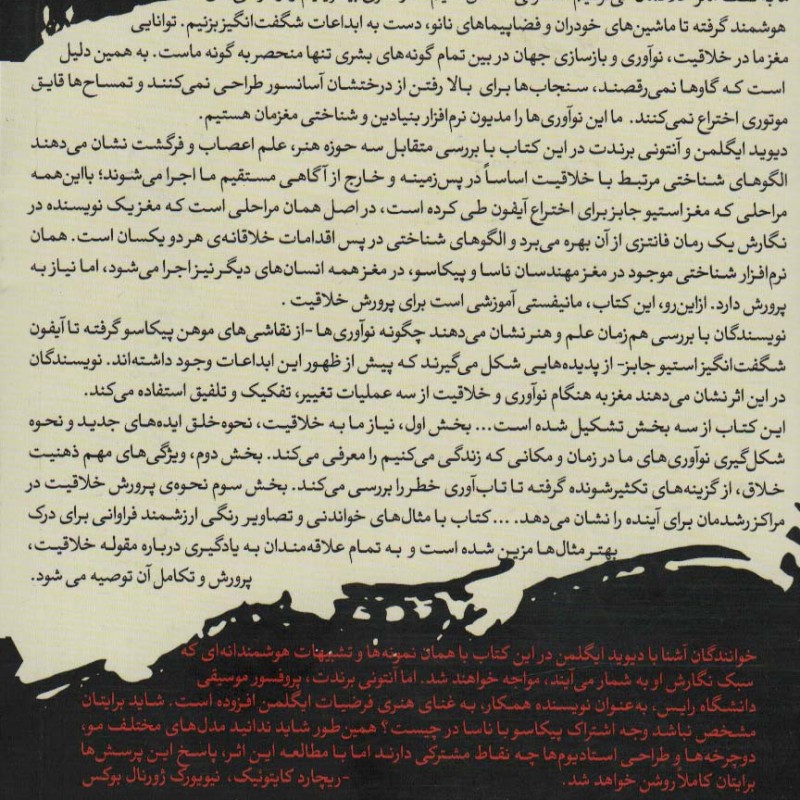 هوشمند گرفته تا ماشین‌های خودران و فضاپیماهای نانو، دست به ابداعات شگفت‌انگیز بزنیم. توانایی
مغز ما در خلاقیت، نوآوری و بازسازی جهان در بین تمام گونه‌های بشری تنها منحصر به گونه ماست. به همین دلیل
است که گاوها نمی‌رقصند، سنجاب‌ها برای بالا رفتن از درختشان آسانسور طراحی نمی‌کنند و تمساح‌ها قایق
موتوری اختراع نمی‌کنند. ما این نوآوری‌ها را مدیون نرم‌افزار بنیادین و شناختی مغزمان هستیم.
دیوید ایگلمن و آنتونی برندت در این کتاب با بررسی متقابل سه حوزه هنر، علم اعصاب و فرگشت نشان می‌دهند
الگوهای شناختی مرتبط با خلاقیت اساساً در پس‌زمینه و خارج از آگاهی مستقیم ما اجرا می‌شوند؛ بااین‌همه
مراحلی که مغز استیو جابز برای اختراع آیفون طی کرده است، در اصل همان مراحلی است که مغز یک نویسنده در
نگارش یک رمان فانتزی از آن بهره می‌برد و الگوهای شناختی در پس اقدامات خلاقانه‌ی هر دو یکسان است. همان
نرم‌افزار شناختی موجود در مغز مهندسان ناسا و پیکاسو، در مغز همه انسان‌های دیگر نیز اجرا می‌شود، اما نیاز به
پرورش دارد. ازاین‌رو، این کتاب، مانیفستی آموزشی است برای پرورش خلاقیت .
نویسندگان با بررسی هم‌زمان علم و هنر نشان می‌دهند چگونه نوآوری‌ها -از نقاشی‌های موهن پیکاسو گرفته تا آیفون
شگفت‌انگیز استیو جابز- از پدیده‌هایی شکل می‌گیرند که پیش از ظهور این ابداعات وجود داشته‌اند. نویسندگان
در این اثر نشان می‌دهند مغز به هنگام نوآوری و خلاقیت از سه عملیات تغییر، تفکیک و تلفیق استفاده می‌کند.
این کتاب از سه بخش تشکیل شده است... بخش اول، نیاز ما به خلاقیت، نحوه خلق ایده‌های جدید و نحوه
شکل‌گیری نوآوری‌های ما در زمان و مکانی که زندگی می‌کنیم را معرفی می‌کند. بخش دوم، ویژگی‌های مهم ذهنیت
خلاق، از گزینه‌های تکثیرشونده گرفته تا تاب‌آوری خطر را بررسی می‌کند. بخش سوم نحوه‌ی پرورش خلاقیت در
مراکز رشدمان برای آینده را نشان می‌دهد. ... کتاب با مثال‌های خواندنی و تصاویر رنگی ارزشمند فراوانی برای درک
بهتر مثال‌ها مزین شده است و به تمام علاقه‌مندان به یادگیری درباره مقوله خلاقیت،
پرورش و تکامل آن توصیه می شود.
خوانندگان آشنا با دیوید ایگلمن در این کتاب با همان نمونه‌ها و تشبیهات هوشمندانه‌ای که
سبک نگارش او به شمار می‌آیند، مواجه خواهند شد. اما آنتونی برندت، پروفسور موسیقی
دانشگاه رایس، به‌عنوان نویسنده همکار، به غنای هنری فرضیات ایگلمن افزوده است. شاید برایتان
مشخص نباشد وجه اشتراک پیکاسو با ناسا در چیست؟ همین‌طور شاید ندانید مدل‌های مختلف مو،
دوچرخه‌ها و طراحی استادیوم‌ها چه نقاط مشترکی دارند اما با مطالعه این اثر، پاسخ این پرسش‌ها
برایتان کاملاً روشن خواهد شد. -ریچارد کایتونیک، نیویورک ژورنال بوکس